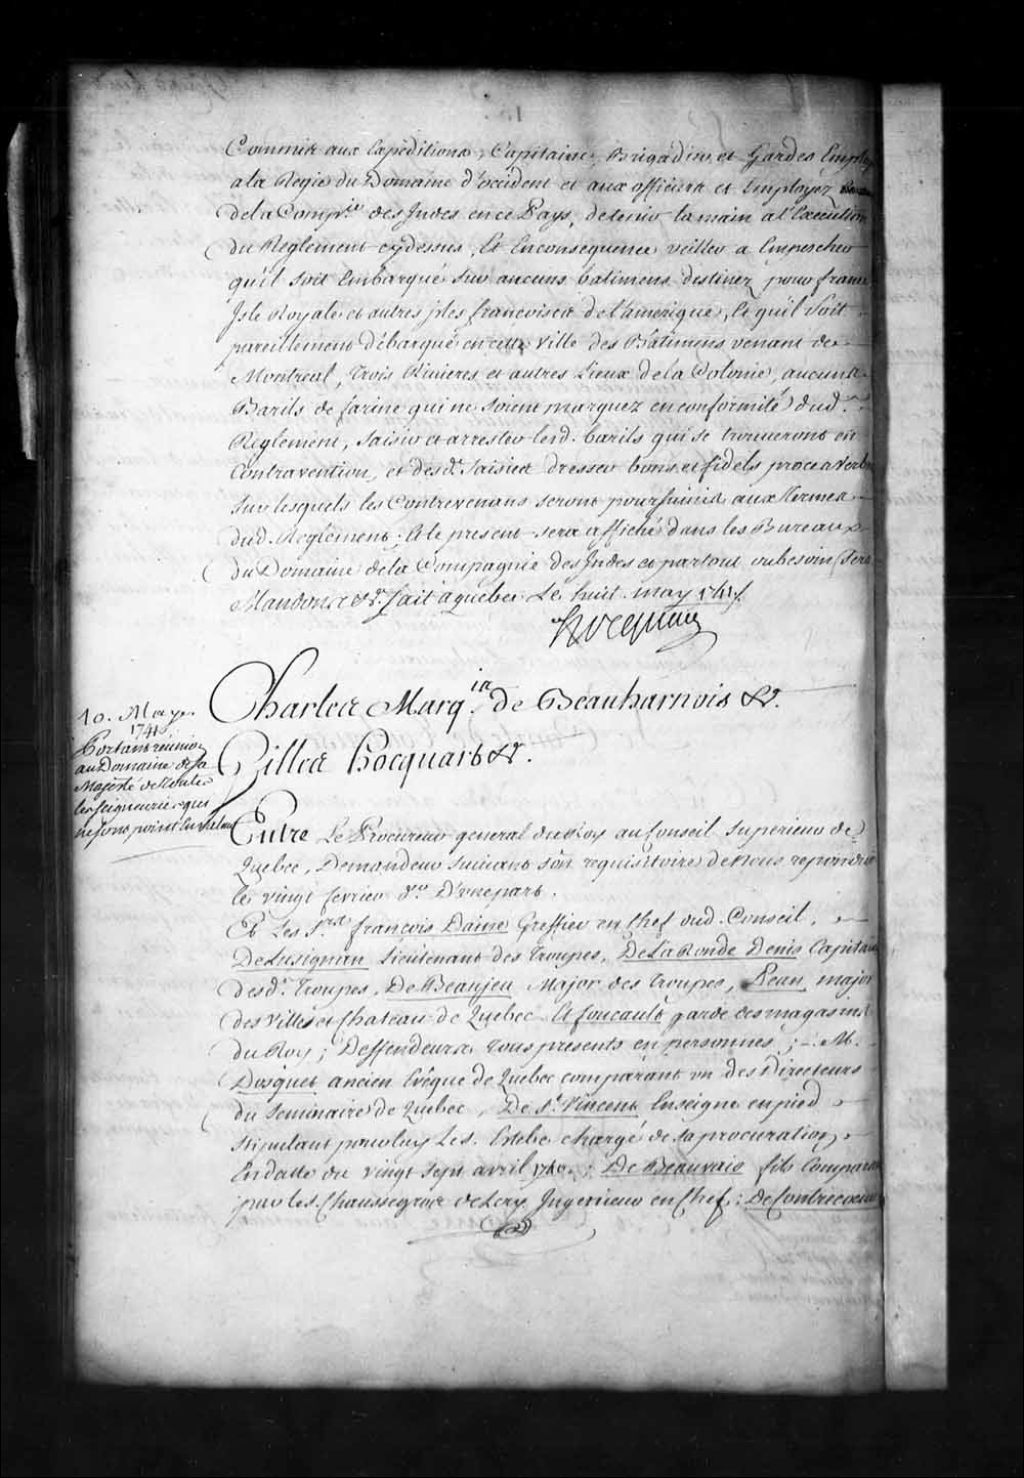 Commis aux Expeditions, Capitaine, Brigadier et Gardes Employ
a la Regie du Domaine d'occident et aux officiers et Employez
de la Comp.ie des Indes en ce Pays, de tenir la main a l'Execution
du Reglement cydessus, Et Enconsequence veiller a Empescher
qu'il soit Embarqué sur aucuns batimens destinez pour france
Isle Royale et autres isles françoises de l'amerique, Et qu'il soit
pareillement débarqué en cette ville des Bâtimens venant de
Montreal, Trois Rivieres et autres Lieux de la Colonie, aucuns
Barils de farine qui ne soient marquez en conformité dud.
Reglement, Saisir et arrester lesd. barils qui se trouveront en
Contravention, et desd. Saisies dresser bons et fidels procesverb
sur lesquels les Contrevenans seront poursuivis aux Termes
dud. Reglement. Et le present sera affiché dans les Bureaux
du Domaine de la Compagnie des Indes et partout ou besoin sera
Mandons &c.a fait a quebec Le huit may 1741./.
Hocquart
10. May.
1741
Portant reunion
au Domaine de sa
Majesté de toutes
les seigneuries qui
ne sont point En valeur
Charles Marq.is de Beauharnois &c.
Gilles Hocquart &c.
Entre Le Procureur general du Roy au Conseil Superieur de
Quebec, Demandeur suivant son requisitoire de Nous repondu
le vingt fevrier d.er D'une part.
Et Les S.rs françois Daine Greffier en Chef dud. Conseil,
De Lusignan Lieutenant des Troupes, De La Ronde Denis Capitaine
desd. Troupes, De Beaujeu Major des Troupes, Pean, major
des Villes et Chateau de Quebec Et foucault garde des magasins
du Roy; Deffendeurs Tous presents en personnes; M.
Dosquet ancien Evêque de Quebec comparant un des Directeurs
du Seminaire de Quebec, De S.t Vincent Enseigne en pied
Stipulant pour luy Le S. Estebe chargé de sa procuration
En datte du vingt sept avril 1740; De Beauvais fils Comparant
par le S. Chaussegros de Lery Ingenieur en Chef; De Contrecoeur